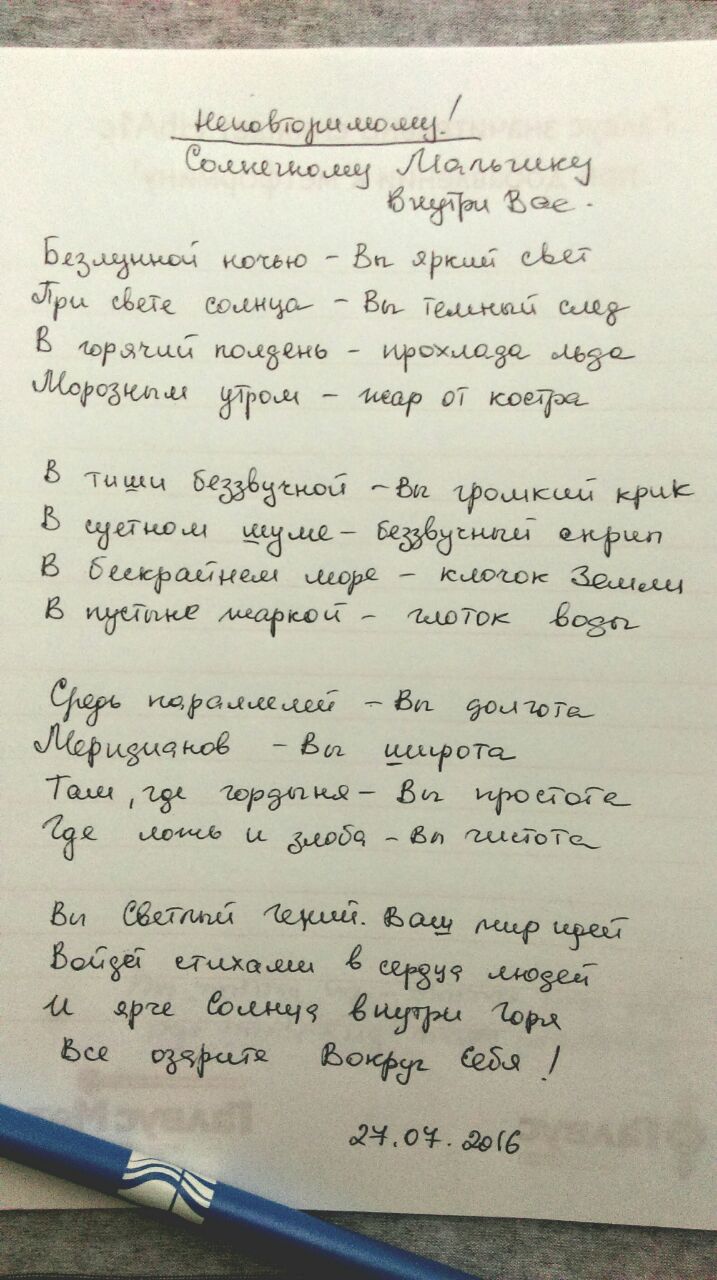 Неповторимому!
Солнечному Мальчику
внутри Вас.
Безлунной ночью - Вы яркий свет
При свете солнца - Вы темный след
В горячий полдень - прохлада льда
Морозным утром - жар от костра
В тиши беззвучной - Вы громкий крик
В суетном шуме - беззвучный скрип
В бескрайнем море - клочок Земли
В пустыне жаркой - глоток воды
Средь параллелей - Вы долгота
Меридианов - Вы широта
Там, где гордыня - Вы простота
Где ложь и злоба - Вы чистота
Вы Светлый Гений. Ваш мир идей
Войдёт стихами в сердца людей
И ярче Солнца внутри Горя
Все озарите Вокруг Себя!
27.07.2016